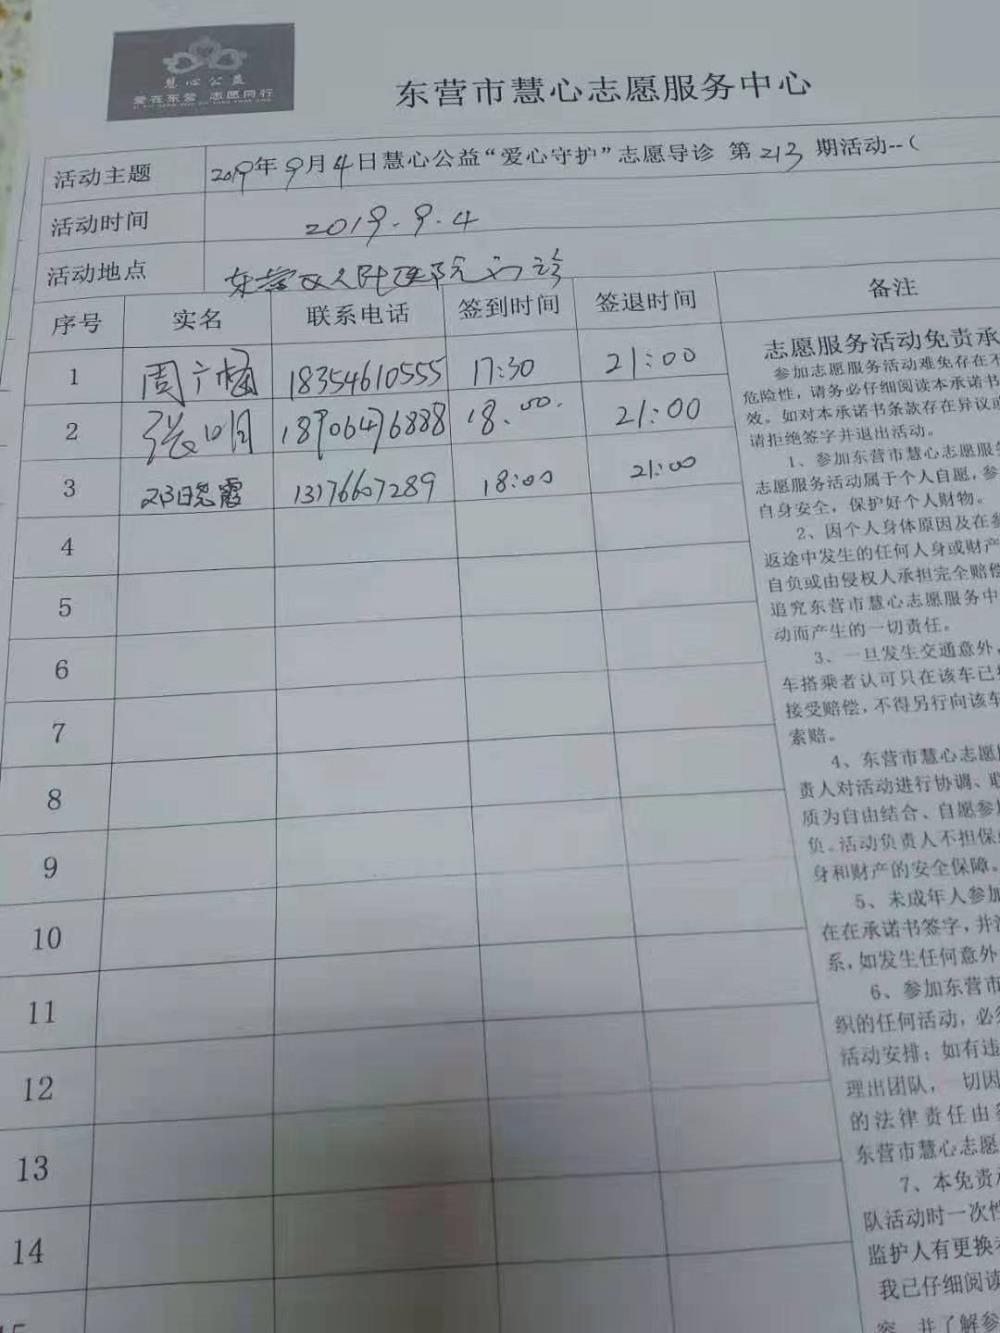 慧心公益
爱在东营 志愿同行
东营市慧心志愿服务中心
活动主题 2019年9月4日慧心公益“爱心守护”志愿导诊 第213期活动--(
活动时间 2019.9.4
活动地点 东营区人民医院门诊
序号 实名 联系电话 签到时间 签退时间 备注
1 周广梅 18354610555 17:30 21:00
2 张明 18906476888 18:00 21:00
3 邓晓霞 13176607289 18:00 21:00
4
5
6
7
8
9
10
11
12
13
14
15
志愿服务活动免责承
参加志愿服务活动难免存在不
危险性，请务必仔细阅读本承诺书
效。如对本承诺书条款存在异议或
请拒绝签字并退出活动。
1、参加东营市慧心志愿服务
志愿服务活动属于个人自愿，参
自身安全，保护好个人财物。
2、因个人身体原因及在参
返途中发生的任何人身或财产
自负或由侵权人承担完全赔偿
追究东营市慧心志愿服务中
动而产生的一切责任。
3、一旦发生交通意外，
车搭乘者认可只在该车已
接受赔偿，不得另行向该车
索赔。
4、东营市慧心志愿
责人对活动进行协调、联
质为自由结合、自愿参加
负。活动负责人不担保
身和财产的安全保障。
5、未成年人参加
在在承诺书签字，并
系，如发生任何意外
6、参加东营市
织的任何活动，必须
活动安排；如有违
理出团队，一切因
的法律责任由
东营市慧心志愿
7、本免责
队活动时一次性
监护人有更换
我已仔细阅读
容，并了解参